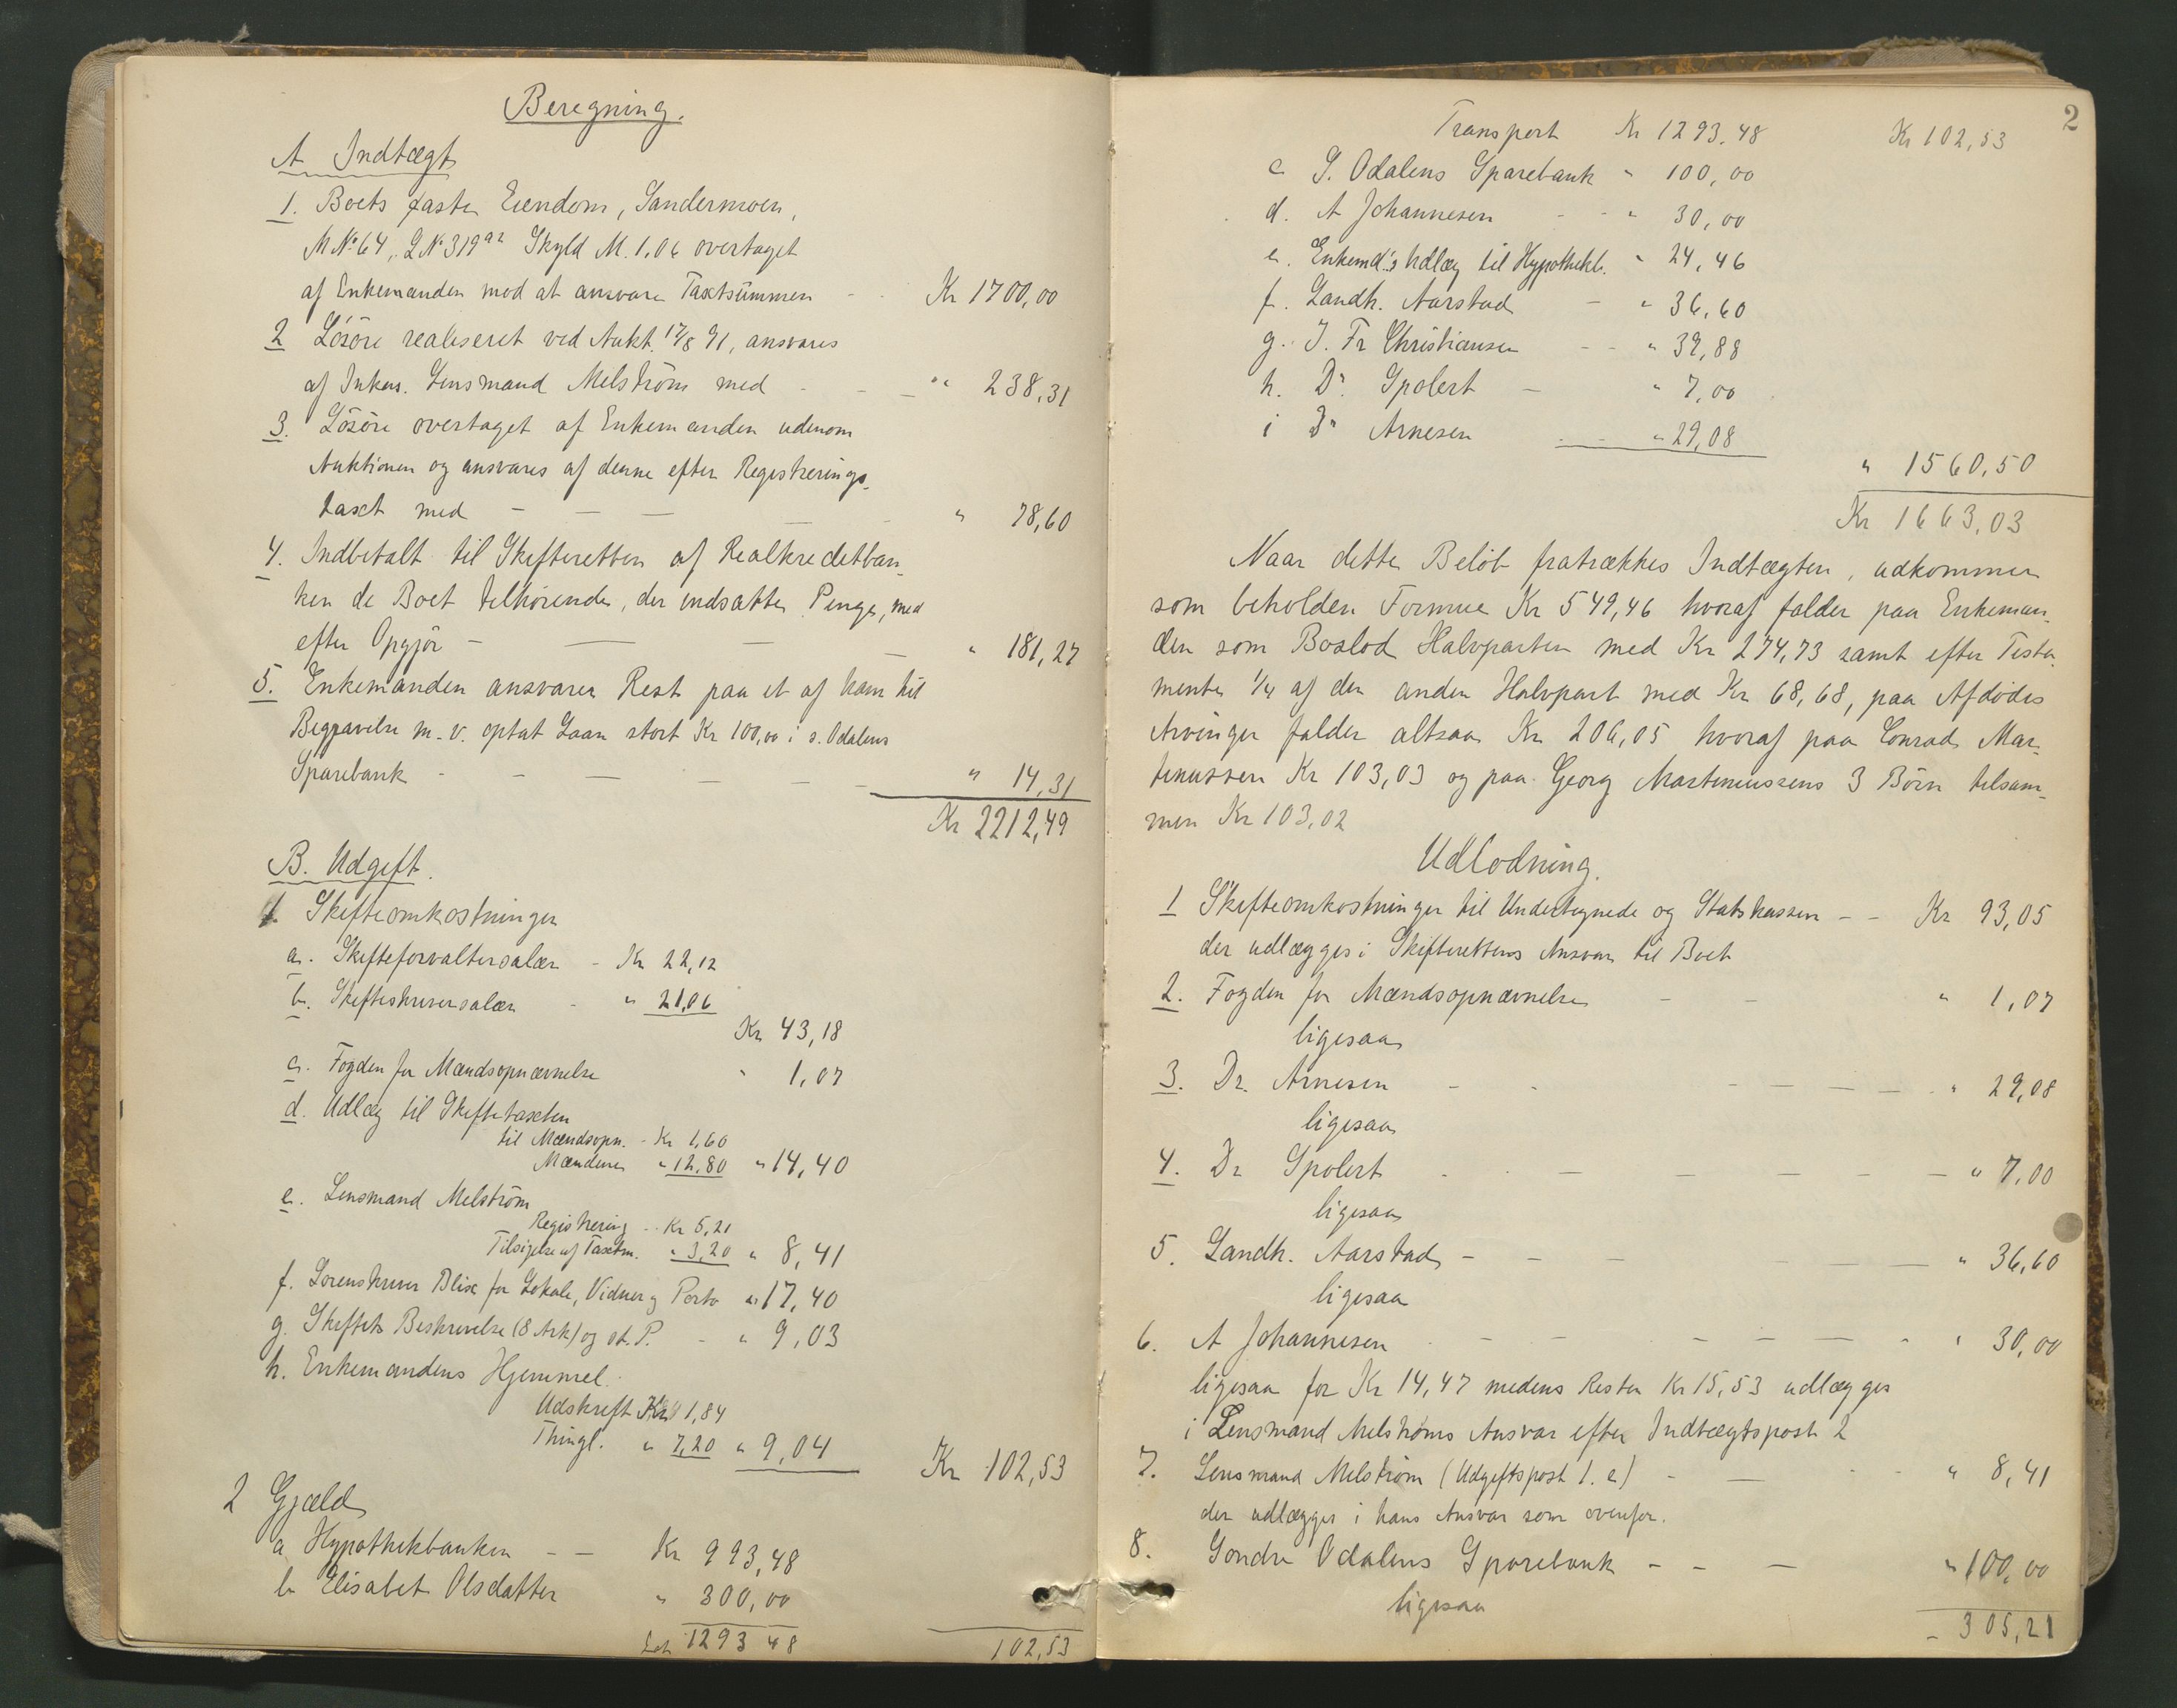 Beregning.
A Indtægt
1. Boets faste Eiendom, Sandermoen,
M N° 64, L N° 319 a2 Skyld M. 1.06 overtaget
af Enkemanden mod at ansvare Taxtsummen - - Kr 1700,00
2 Lösöre realiseret ved Aukt. 17/8 91, ansvares
af Inkas. Lensmand Melström med - - - " 238,31
3. Lösöre overtaget af Enkemanden udenom
Auktionen og ansvares af denne efter Registrerings-
taxt med - - - - - " 78,60
4. Indbetalt til Skifteretten af Realkreditban-
ken de Boet tilhörende, der indsatte Penge, med
efter Opgjör - - - - " 181,27
5. Enkemanden ansvarer Rest paa et af ham til
Begravelse m. v. optat Laan stort Kr 100,00 i s. Odalens
Sparebank - - - - - - " 14,31
Kr 2212,49
B. Udgift.
1. Skifteomkostninger
a. Skifteforvaltersalær - Kr 22,12
b. Skifteskriversalær - " 21,06
Kr 43,18
c. Fogden for Mændsopnævnelse " 1,07
d. Udlæg til Skiftetaxten
til Mændsopn. - Kr 1,60
Mændene " 12,80 " 14,40
e. Lensmand Melström
Registrering - Kr 5,21
Tilsigelse af Taxtm. " 3,20 " 8,41
f. Sorenskriver Blix for Lokale, Vidner og Porto " 17,40
g. Skiftets Beskrivelse (8 Ark) og st. P. - " 9,03
h. Enkemandens Hjemmel.
Udskrift Kr 1,84
Thingl. " 7,20 " 9,04 Kr 102,53
2 Gjæld
a Hypothekbanken - - Kr 993,48
b Elisabet Olsdatter " 300,00
Lat 1293 48 102,53
2
Transport Kr 1293,48 Kr 102,53
c S. Odalens Sparebank " 100,00
d. A Johannesen - - " 30,00
e. Enkemd's Udlæg til Hypothekb. " 24,46
f. Landh. Aarstad - " 36,60
g. J. Fr Christiansen - - " 39,88
h. Dr Spolert - " 7,00
i Dr Arnesen - - " 29,08
" 1560,50
Kr 1663,03
Naar dette Belöb fratrækkes Indtægten, udkommer
som beholden Formue Kr 549,46 hvoraf falder paa Enkeman-
den som Boslod Halvparten med Kr 274,73 samt efter Testa-
mente 1/4 af den anden Halvpart med Kr 68,68, paa Afdödes
Arvinger falder altsaa Kr 206,05 hvoraf paa Conrad Mar-
tinussen Kr 103,03 og paa Georg Martinussens 3 Börn tilsam-
men Kr 103,02
Udlodning.
1 Skifteomkostninger til Undertegnede og Statskassen - - Kr 93,05
der udlægges i Skifterettens Ansvar til Boet
2. Fogden for Mændsopnævnelse - - " 1,07
ligesaa
3. Dr. Arnesen - - - - - - " 29,08
ligesaa
4. Dr Spolert - - - - - - " 7,00
ligesaa
5. Landh. Aarstad - - - - - - " 36,60
ligesaa
6. A Johannesen - - - - - - " 30,00
ligesaa for Kr 14,47 medens Resten Kr 15,53 udlægges
i Lensmand Melströms Ansvar efter Indtægtspost 2
7. Lensmand Melström (Udgiftspost 1. e) - - - " 8,41
der udlægges i hans Ansvar som ovenfor.
8. Söndre Odalens Sparebank - - - " 100,00
ligesaa
- 305,21